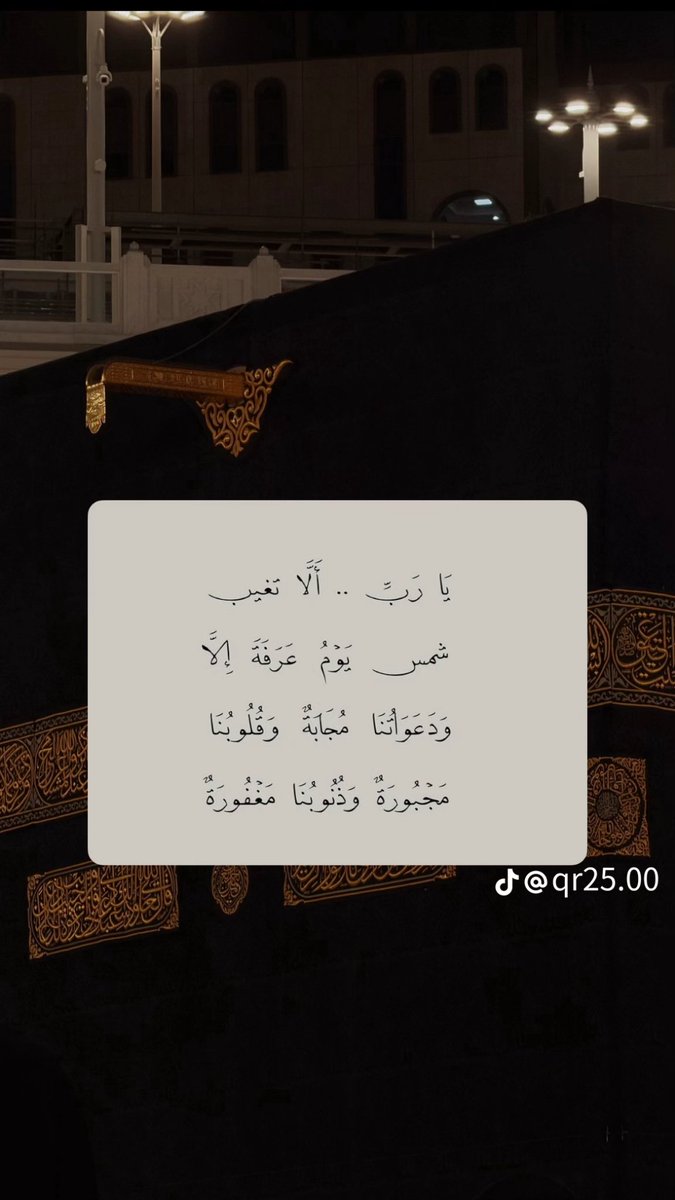 يَا رَبِّ .. أَلَّا تغيب
شمس يَوْمُ عَرَفَةَ إِلَّا
وَدَعَوَاتُنَا مُجَابَةٌ وَقُلُوبُنَا
مَجْبُورَةٌ وَذُنُوبُنَا مَغْفُورَةٌ
@qr25.00